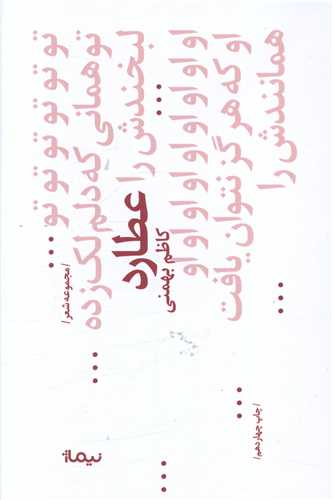 تو تو تو تو تو تو تو ...
| مجموعه شعر |
تو همانی که دلم لک زده ...
لبخندش را
عطارد
کاظم بهمنی
... او او او او او او او او او او
...
او که هرگز نتوان یافت
...
همانندش را
...
| چاپ چهاردهم |
نیماژ